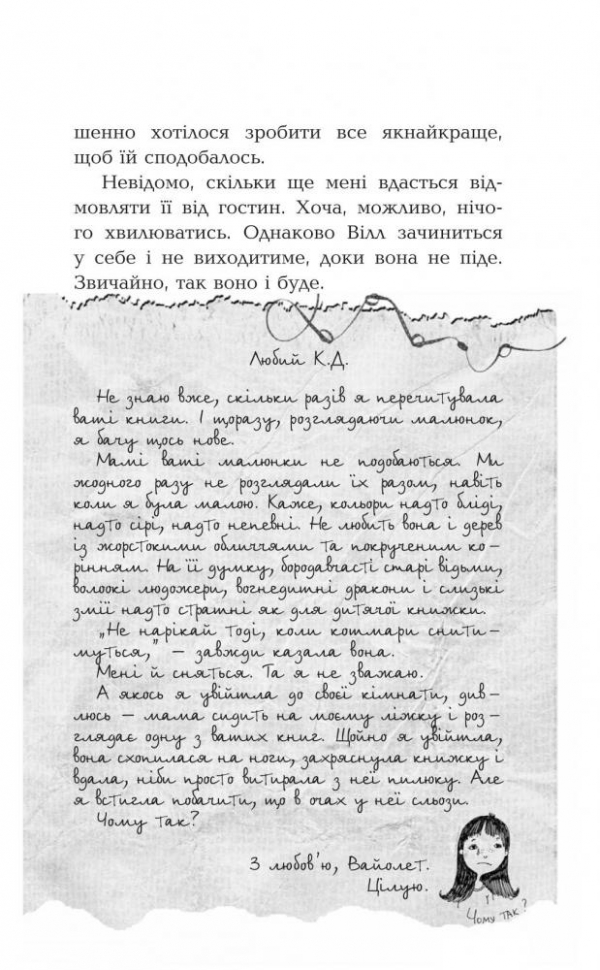 шенно хотілося зробити все якнайкраще,
щоб їй сподобалось.
Невідомо, скільки ще мені вдасться від-
мовляти її від гостин. Хоча, можливо, нічо-
го хвилюватись. Однаково Вілл зачиниться
у себе і не виходитиме, доки вона не піде.
Звичайно, так воно і буде.
Любий К.Д.
Не знаю вже, скільки разів я перечитувала
ваші книги. І щоразу, розглядаючи малюнок,
я бачу щось нове.
Мамі ваші малюнки не подобаються. Ми
жодного разу не розглядали їх разом, навіть
коли я була малою. Каже, кольори надто бліді,
надто сірі, надто непевні. Не любить вона і дерев
із жорстокими обличчями та покрученим ко-
рінням. На її думку, бородавчасті старі відьми,
волоокі людожери, вогнедишні дракони і слизькі
змії надто страшні як для дитячої книжки.
„Не нарікай тоді, коли кошмари снити-
муться,“ – завжди казала вона.
Мені й сняться. Та я не зважаю.
А якось я увійшла до своєї кімнати, див-
люсь – мама сидить на моєму ліжку і роз-
глядає одну з ваших книг. Щойно я увійшла,
вона схопилася на ноги, захряснула книжку і
вдала, ніби просто витирала з неї пилюку. Але
я встигла побачити, що в очах у неї сльози.
Чому так?
З любов'ю, Вайолет.
Цілую.
Чому так?